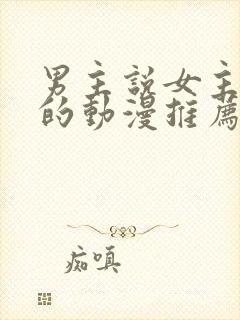 男主說女主
的動漫推薦
痴嗔